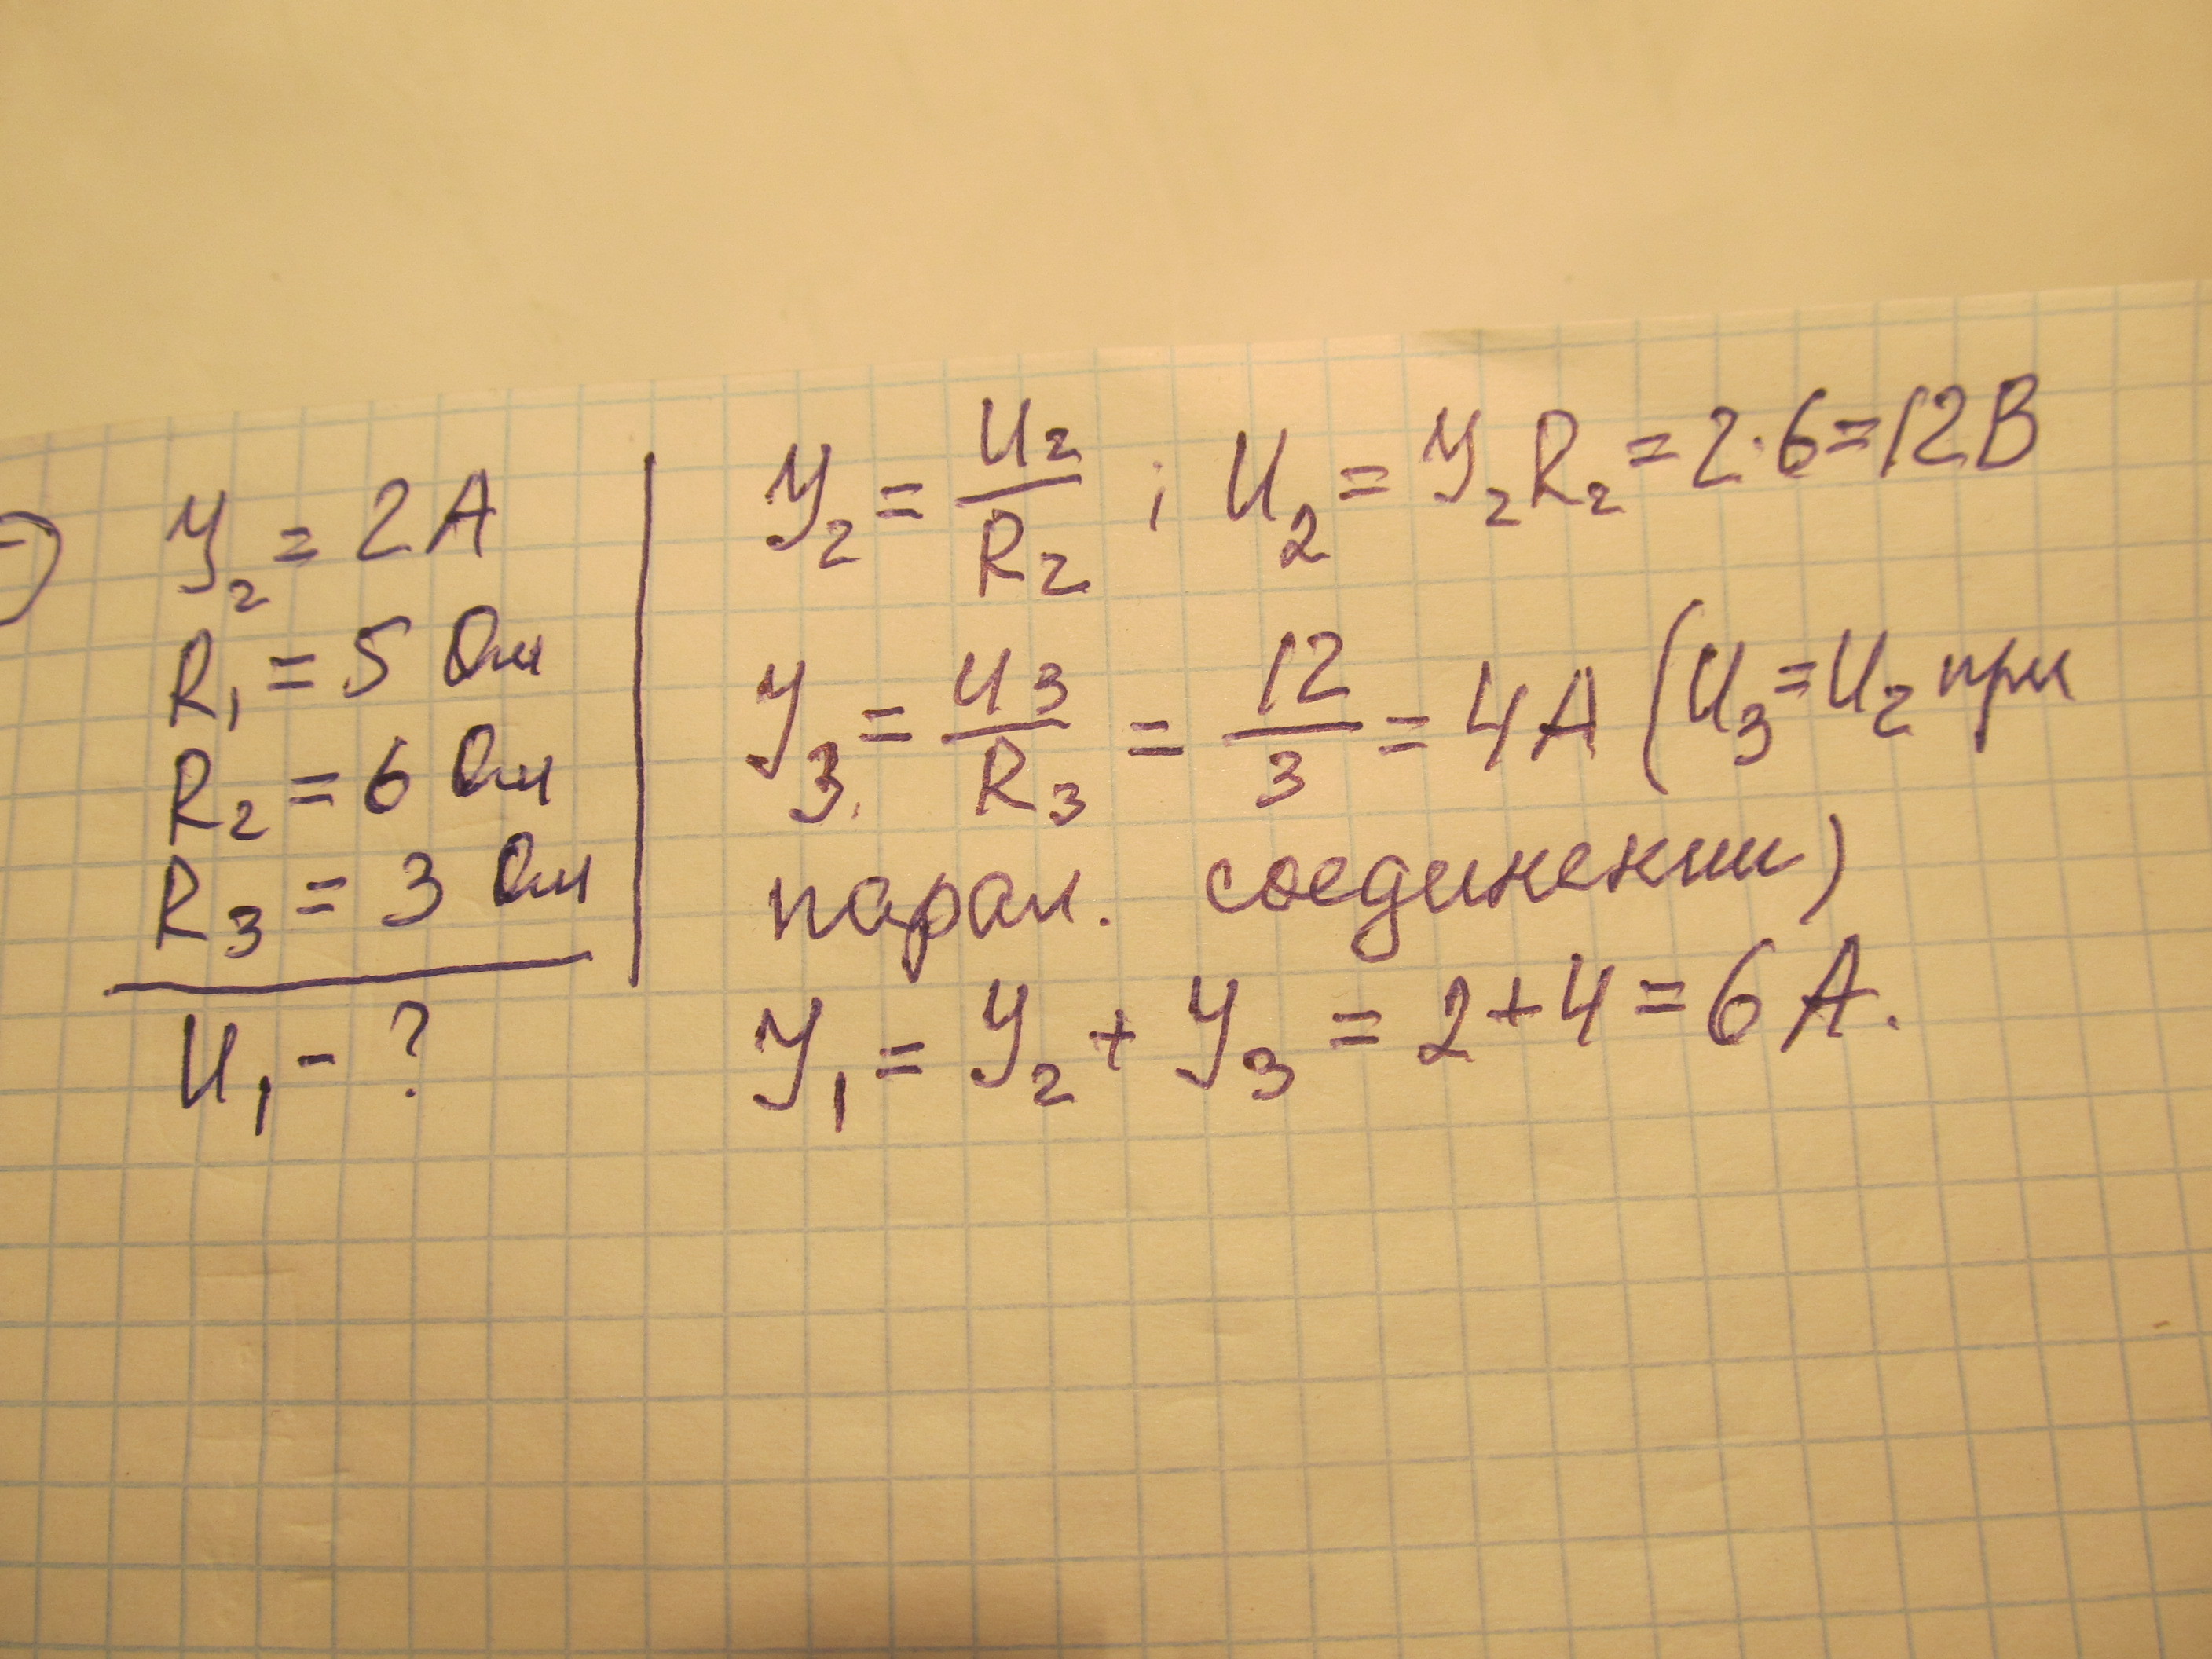 У₂ = 2 А
R₁ = 5 Ом
R₂ = 6 Ом
R₃ = 3 Ом
U₁ - ?
У₂ = U₂/R₂ ; U₂ = У₂R₂ = 2·6 = 12 В
У₃ = U₃/R₃ = 12/3 = 4 А (U₃ = U₂ при
парал. соединении)
У₁ = У₂ + У₃ = 2 + 4 = 6 А.